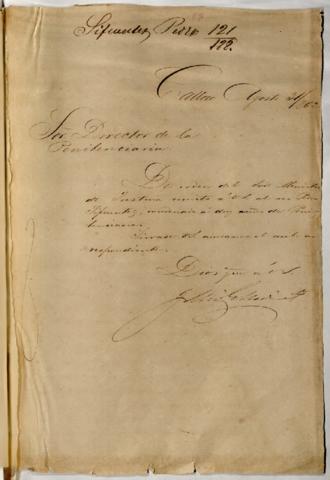 Sifuentes, Pedro 121
122.
Callao Agosto 21/62
Sor. Director de la
Penitenciaria
De orden del Sor Ministro
de Justicia remito á US al reo Pedro
Sifuentes, sentenciado á dos años de Peni
tenciaria.
Sirvase US avisarme el
respondiente.
Dios gue á US